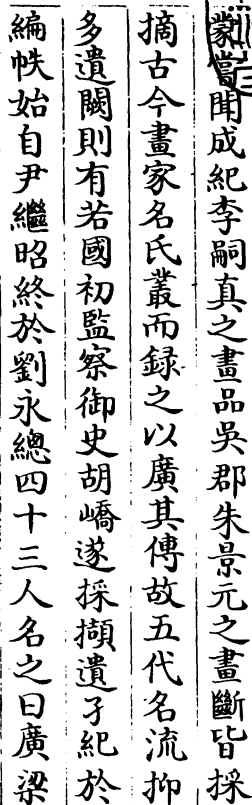 蒙嘗聞成紀李嗣真之畫品吳郡朱景元之畫斷皆採
摘古今畫家名氏叢而録之以廣其傳故五代名流抑
多遺闕則有若國初監察御史胡嶠遂採擷遺子紀於
編帙始自尹繼昭終於劉永總四十三人名之曰廣梁